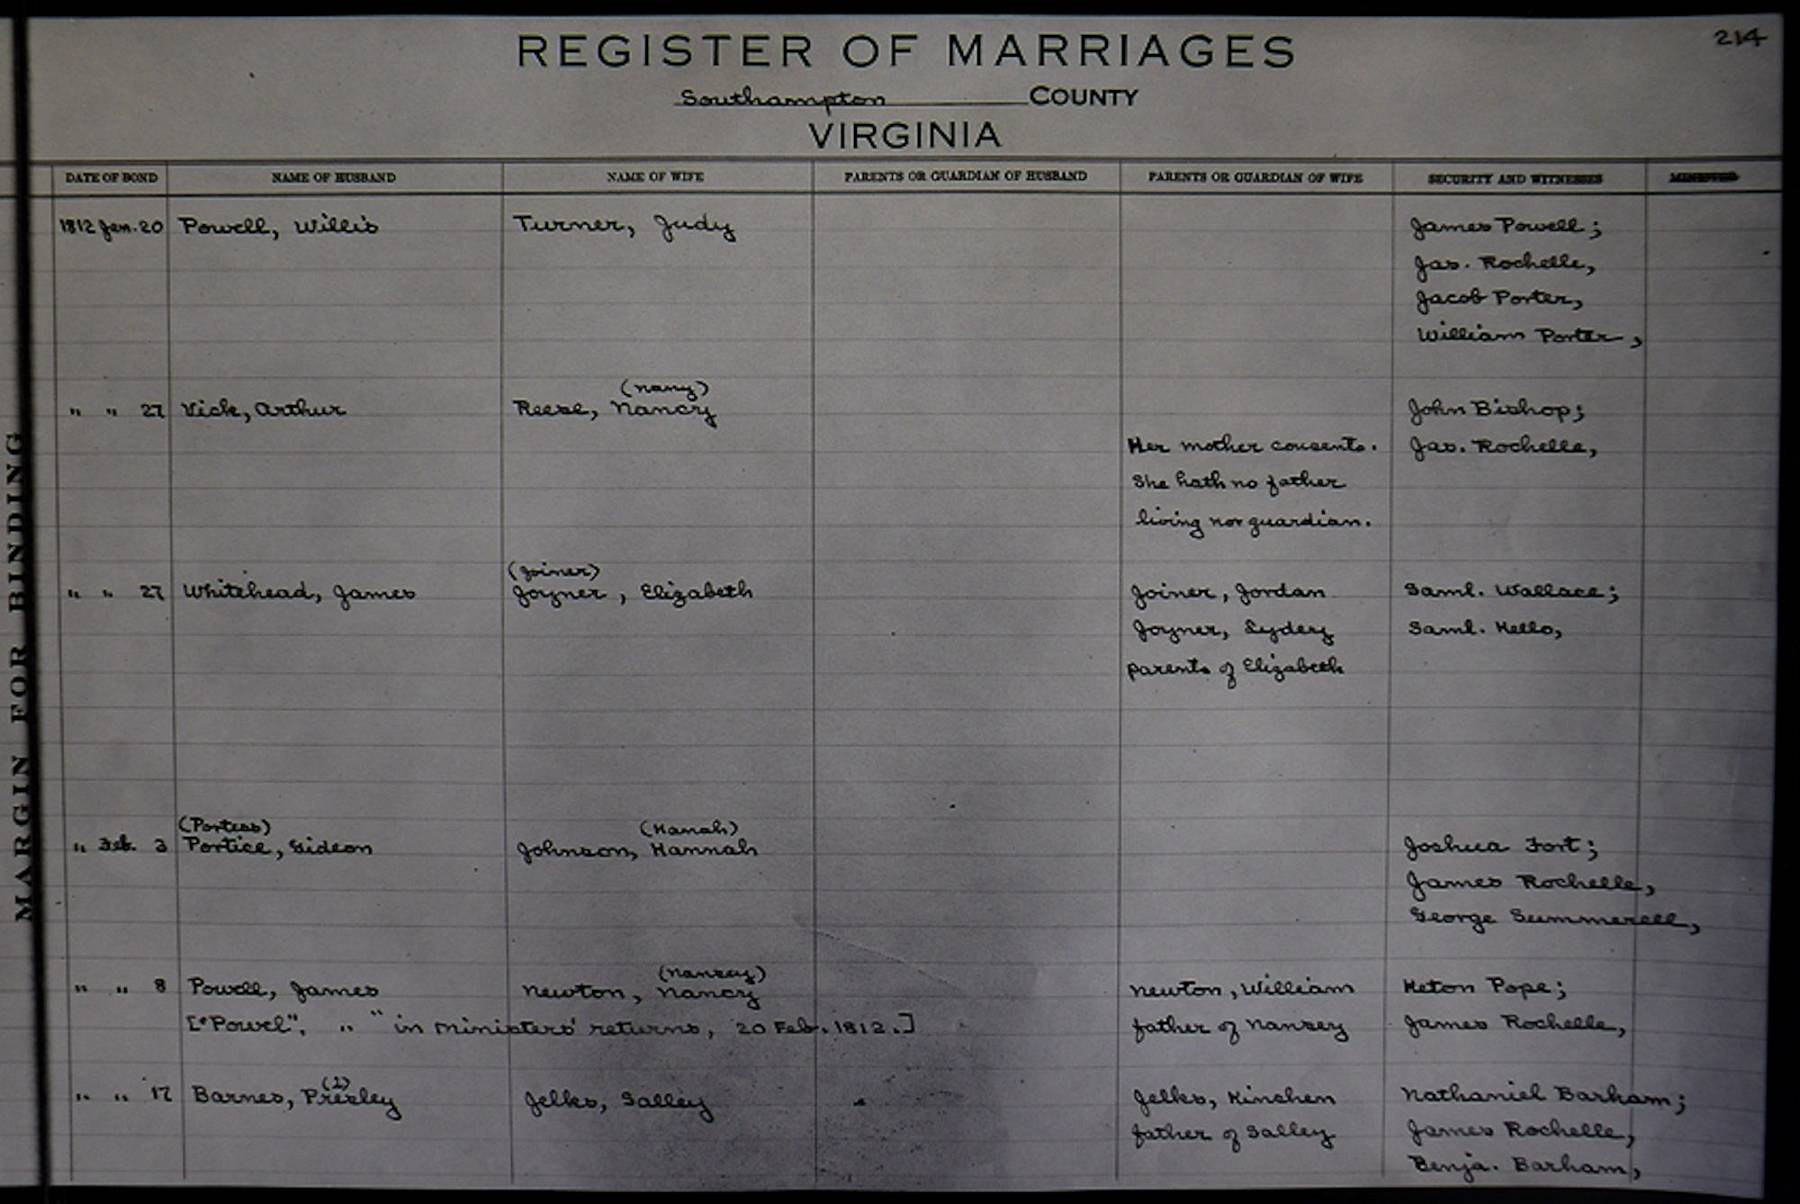 214
REGISTER OF MARRIAGES
Southampton COUNTY
VIRGINIA
MARGIN FOR BINDING
DATE OF BOND NAME OF HUSBAND NAME OF WIFE PARENTS OR GUARDIAN OF HUSBAND PARENTS OR GUARDIAN OF WIFE SECURITY AND WITNESSES MINISTER
1812 Jan. 20 Powell, Willis Turner, Judy James Powell;
Jas. Rochelle,
Jacob Porter,
William Porter,
(Nany)
" " 27 Vick, Arthur Reese, Nancy John Bishop;
Her mother consents. Jas. Rochelle,
She hath no father
living nor guardian.
(Joiner)
" " 27 Whitehead, James Joyner, Elizabeth Joiner, Jordan Saml. Wallace;
Joyner, Lydey Saml. Kello,
parents of Elizabeth
(Portess) (Hanah)
" Feb. 3 Portice, Gideon Johnson, Hannah Joshua Fort;
James Rochelle,
George Summerell,
(Nansey)
" " 8 Powell, James Newton, Nancy Newton, William Keton Pope;
["Powel", " " in Ministers' returns, 20 Feb. 1812.] father of Nansey James Rochelle,
" " 17 Barnes, Presley Jelks, Salley Jelks, Kinchen Nathaniel Barham;
father of Salley James Rochelle,
Benja. Barham,